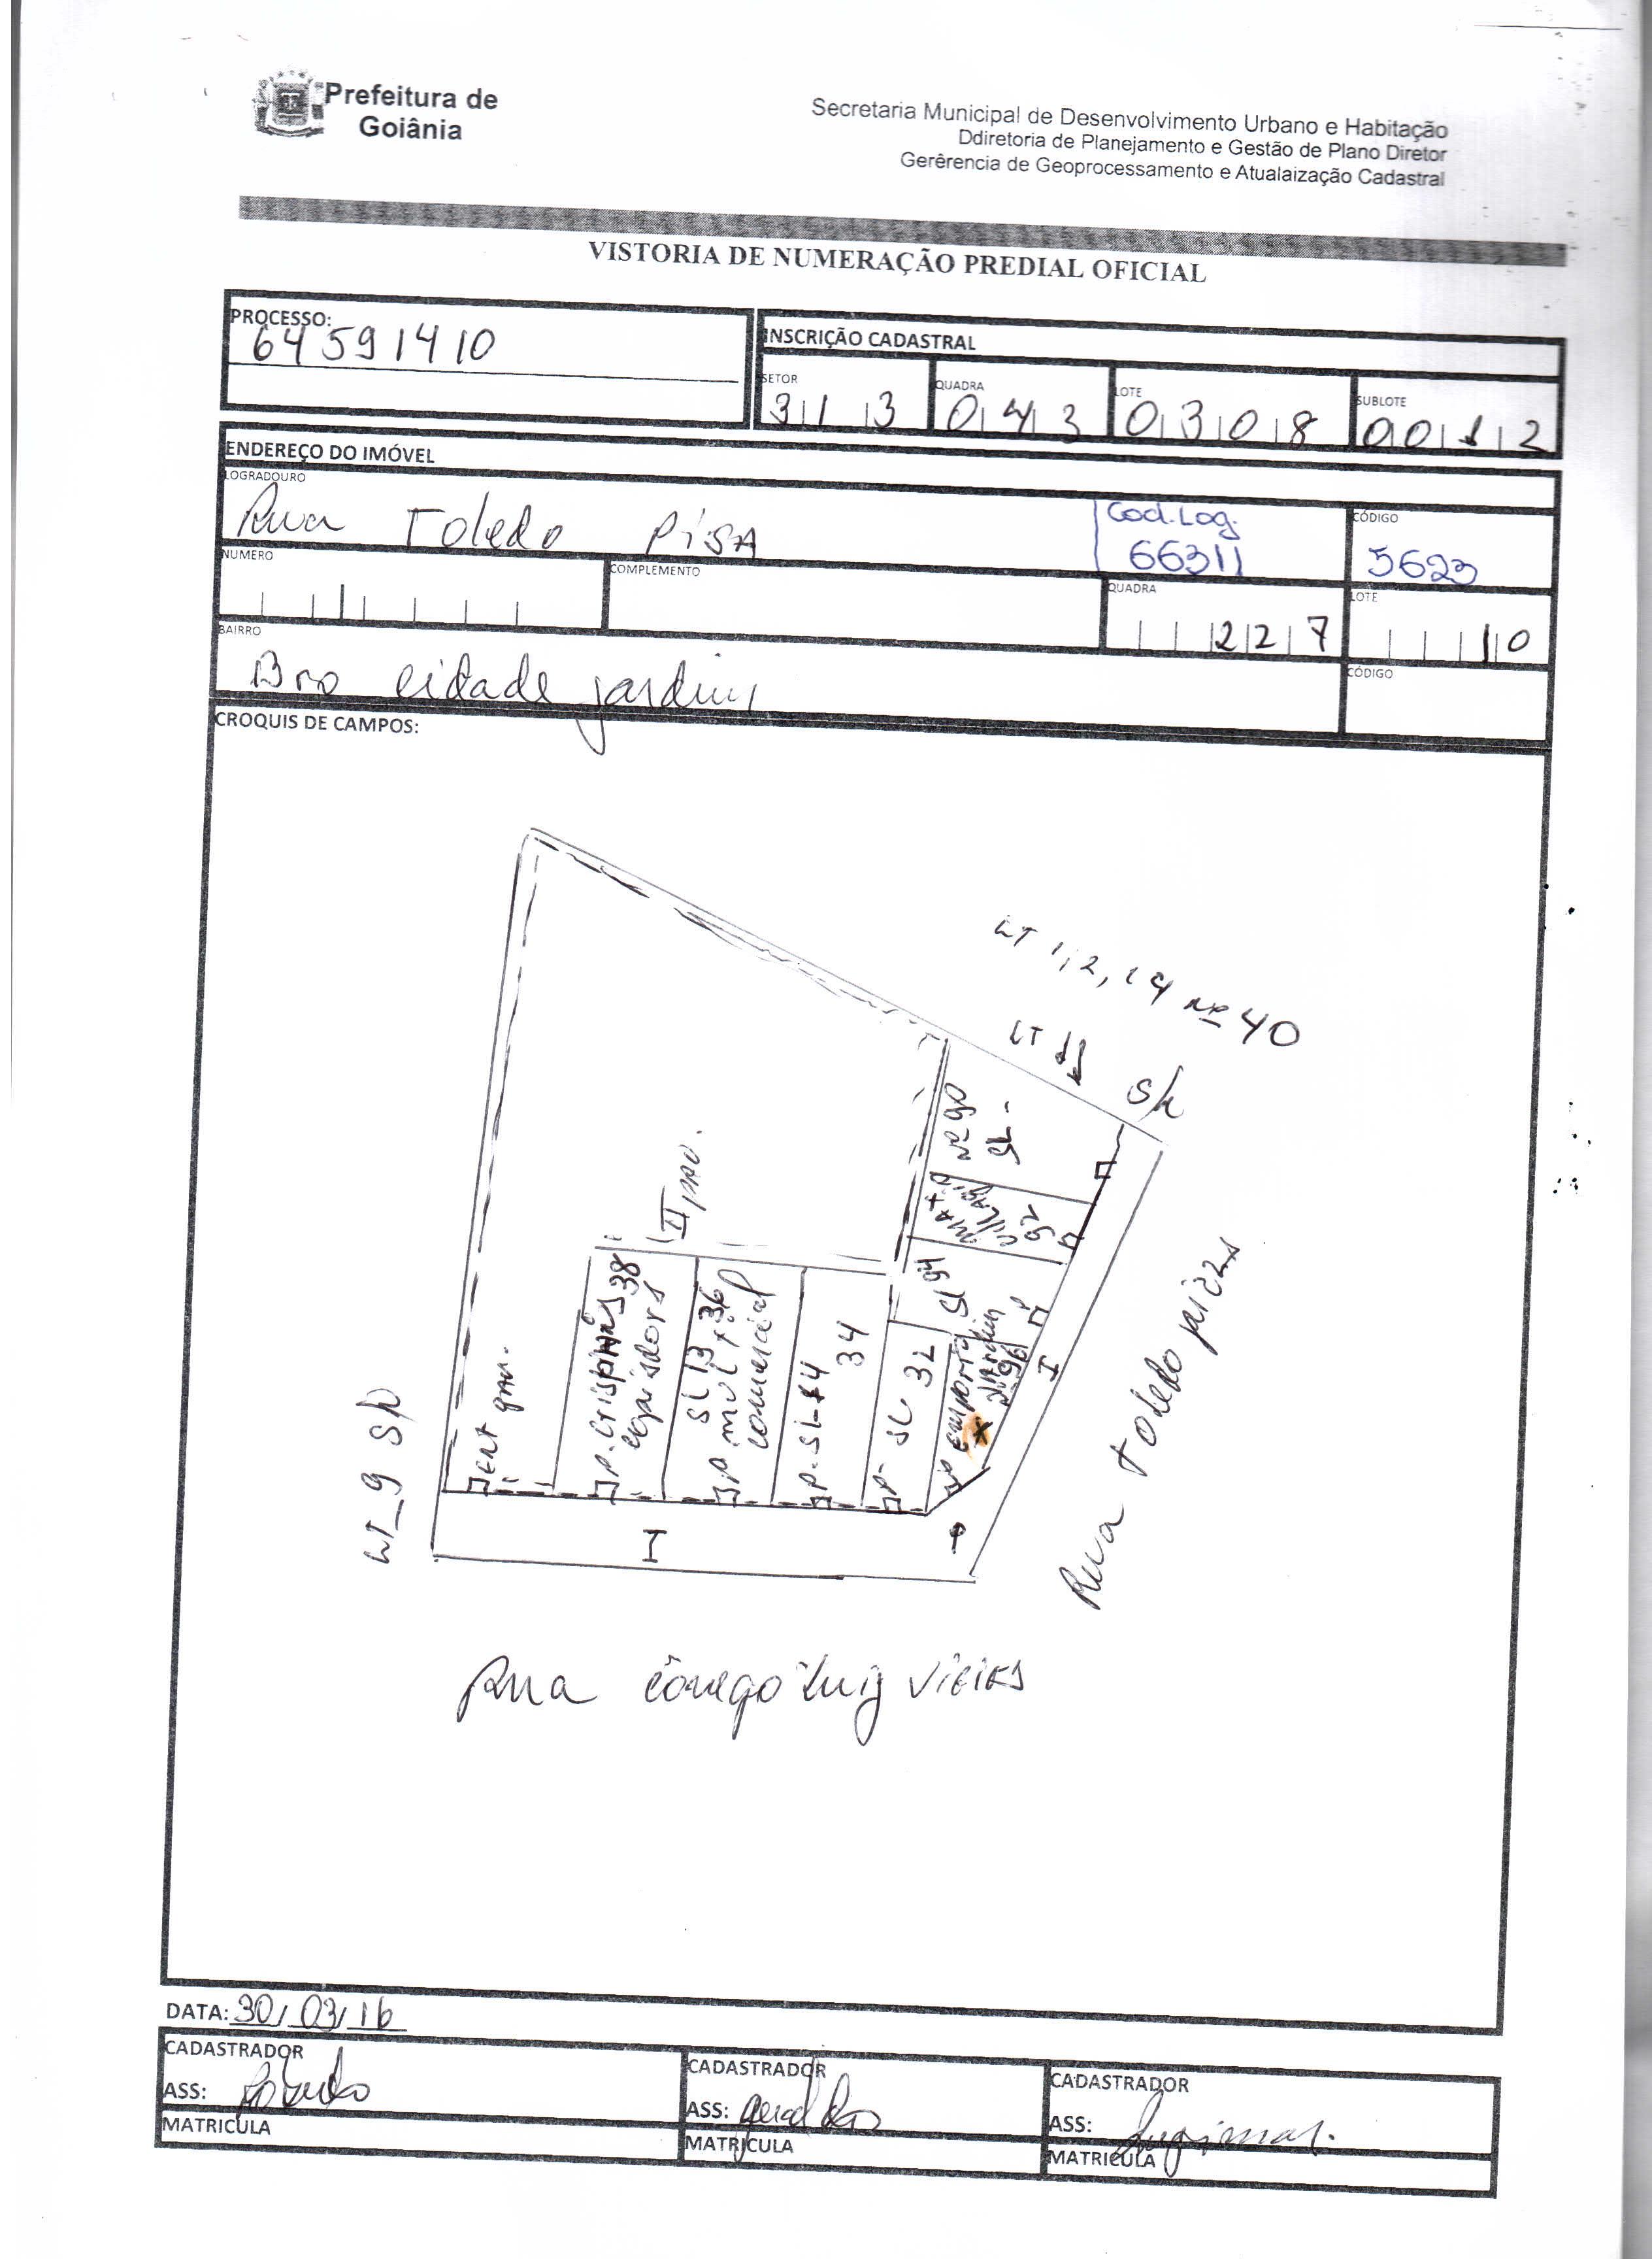 Prefeitura de
Goiânia
Secretaria Municipal de Desenvolvimento Urbano e Habitação
Ddiretoria de Planejamento e Gestão de Plano Diretor
Gerêrencia de Geoprocessamento e Atualaização Cadastral
VISTORIA DE NUMERAÇÃO PREDIAL OFICIAL
PROCESSO:
64591410
INSCRIÇÃO CADASTRAL
SETOR
313
QUADRA
043
LOTE
0308
SUBLOTE
0012
ENDEREÇO DO IMÓVEL
LOGRADOURO
Rua Toledo PiSA
Cod.Log.
66311
CÓDIGO
5623
NUMERO
COMPLEMENTO
QUADRA
227
LOTE
10
BAIRRO
Bro cidade jardim
CÓDIGO
CROQUIS DE CAMPOS:
LT 1, 2, 14 Nº 40
LT 11
S/N
Nº 90
SL.
92
SL 94
96
II PAV.
ENT
38
SL 13 36
comercial
P. SL-14
34
P SL 32
LT_9 S/N
I
I
Rua toledo piza
Rua cônego Luiz vieira
DATA: 30/03/16
CADASTRADOR
ASS:
MATRICULA
CADASTRADOR
ASS: geraldo
MATRICULA
CADASTRADOR
ASS:
MATRICULA